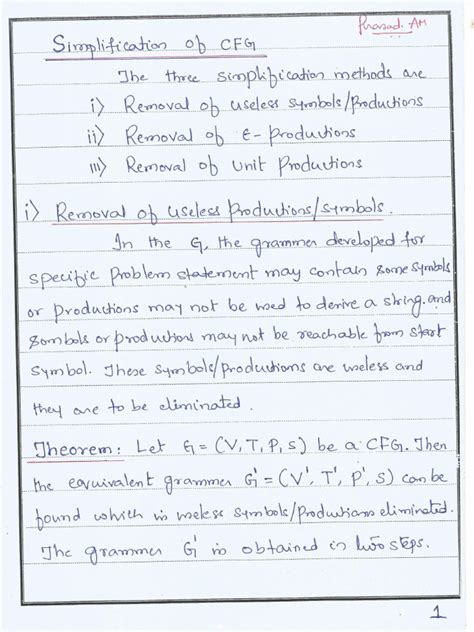 Prasad. AM
Simplification of CFG
The three simplification methods are
i) Removal of useless symbols/productions
ii) Removal of ε-productions
iii) Removal of Unit Productions
i) Removal of useless Productions/symbols.
In the G, the grammer developed for
specific problem statement may contain some symbols
or productions may not be used to derive a string. and
sombols or productions may not be reachable from start
symbol. These symbols/productions are useless and
they are to be eliminated.
Theorem: Let G = (V, T, P, S) be a CFG. Then
the equivalent grammer G' = (V', T', P', S) can be
found which is useless symbols/Productions eliminated.
The grammer G' is obtained in two steps.
1